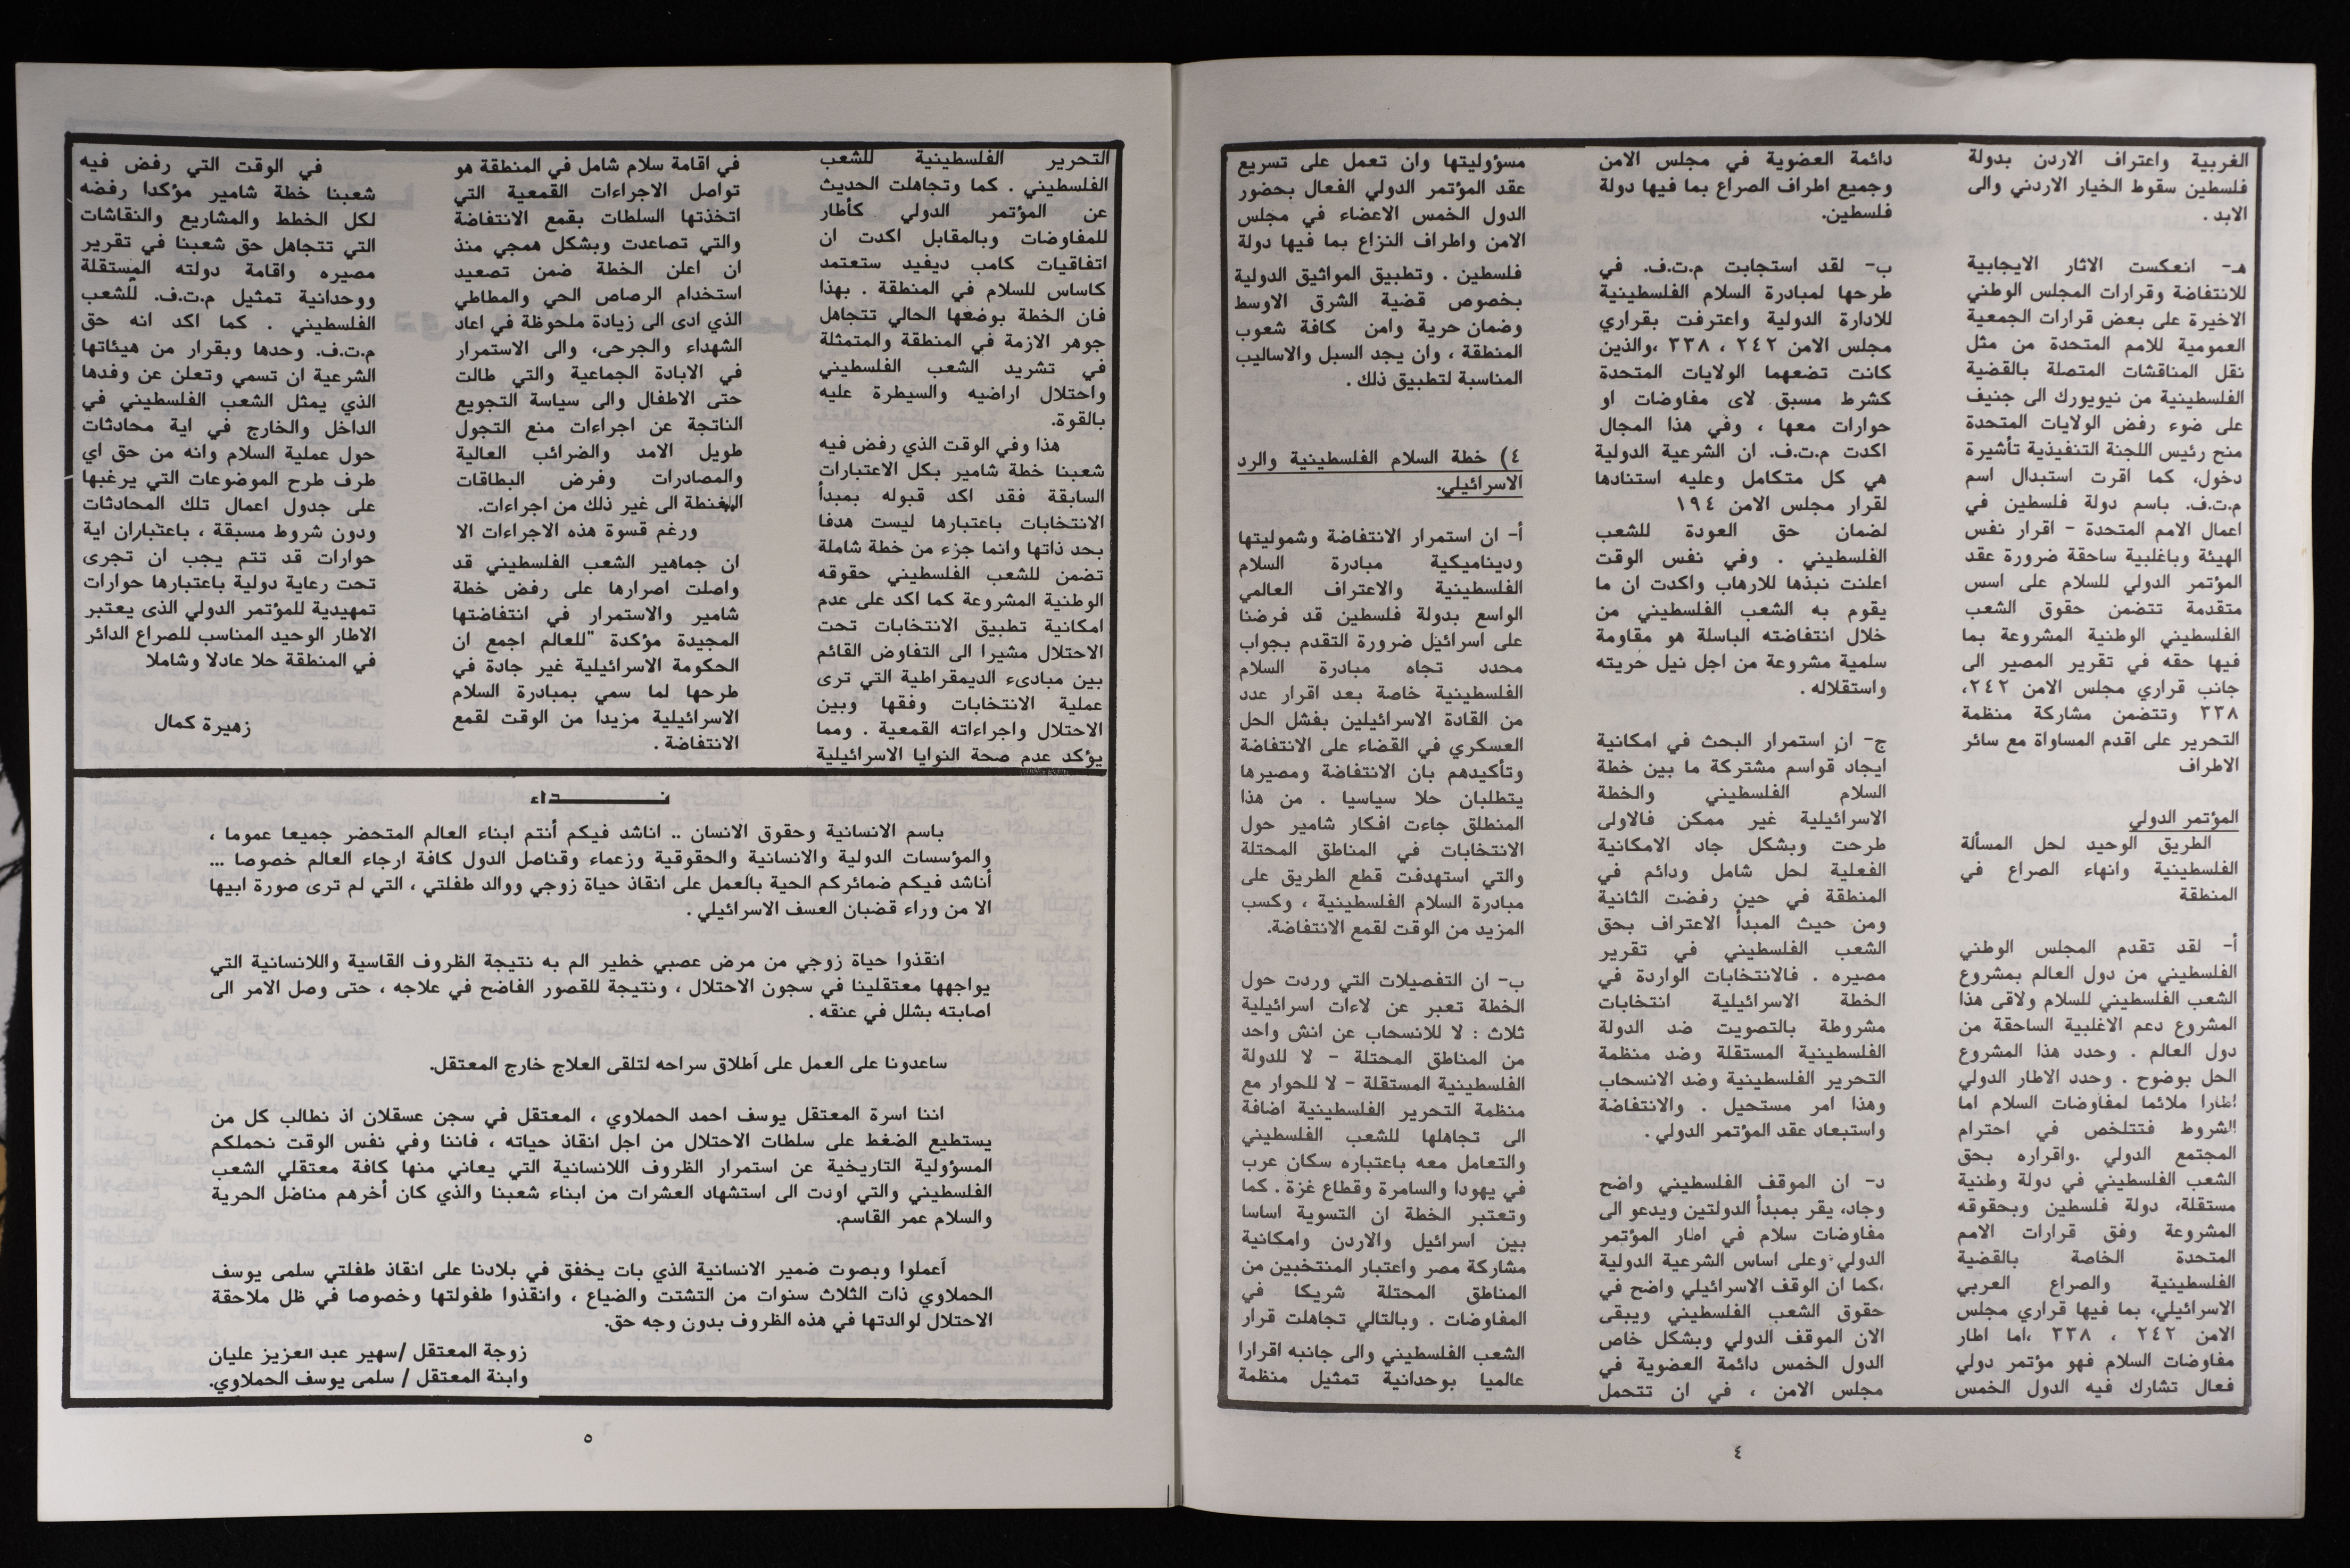 الغربية واعتراف الاردن بدولة
فلسطين سقوط الخيار الاردني والى
الابد .
هـ- انعكست الاثار الايجابية
للانتفاضة وقرارات المجلس الوطني
الاخيرة على بعض قرارات الجمعية
العمومية للامم المتحدة من مثل
نقل المناقشات المتصلة بالقضية
الفلسطينية من نيويورك الى جنيف
على ضوء رفض الولايات المتحدة
منح رئيس اللجنة التنفيذية تأشيرة
دخول، كما اقرت استبدال اسم
م.ت.ف. باسم دولة فلسطين في
اعمال الامم المتحدة - اقرار نفس
الهيئة وباغلبية ساحقة ضرورة عقد
المؤتمر الدولي للسلام على اسس
متقدمة تتضمن حقوق الشعب
الفلسطيني الوطنية المشروعة بما
فيها حقه في تقرير المصير الى
جانب قراري مجلس الامن ٢٤٢،
٣٣٨ وتتضمن مشاركة منظمة
التحرير على اقدم المساواة مع سائر
الاطراف
المؤتمر الدولي
الطريق الوحيد لحل المسألة
الفلسطينية وانهاء الصراع في
المنطقة
أ- لقد تقدم المجلس الوطني
الفلسطيني من دول العالم بمشروع
الشعب الفلسطيني للسلام ولاقى هذا
المشروع دعم الاغلبية الساحقة من
دول العالم . وحدد هذا المشروع
الحل بوضوح . وحدد الاطار الدولي
اطارا ملائما لمفاوضات السلام اما
الشروط فتتلخص في احترام
المجتمع الدولي .واقراره بحق
الشعب الفلسطيني في دولة وطنية
مستقلة، دولة فلسطين وبحقوقه
المشروعة وفق قرارات الامم
المتحدة الخاصة بالقضية
الفلسطينية والصراع العربي
الاسرائيلي، بما فيها قراري مجلس
الامن ٢٤٢ ، ٣٣٨ ،اما اطار
مفاوضات السلام فهو مؤتمر دولي
فعال تشارك فيه الدول الخمس
دائمة العضوية في مجلس الامن
وجميع اطراف الصراع بما فيها دولة
فلسطين.
ب- لقد استجابت م.ت.ف. في
طرحها لمبادرة السلام الفلسطينية
للادارة الدولية واعترفت بقراري
مجلس الامن ٢٤٢ ، ٣٣٨ ،والذين
كانت تضعهما الولايات المتحدة
كشرط مسبق لاى مفاوضات او
حوارات معها ، وفي هذا المجال
اكدت م.ت.ف. ان الشرعية الدولية
هي كل متكامل وعليه استنادها
لقرار مجلس الامن ١٩٤
لضمان حق العودة للشعب
الفلسطيني . وفي نفس الوقت
اعلنت نبذها للارهاب واكدت ان ما
يقوم به الشعب الفلسطيني من
خلال انتفاضته الباسلة هو مقاومة
سلمية مشروعة من اجل نيل حريته
واستقلاله .
ج- ان استمرار البحث في امكانية
ايجاد قواسم مشتركة ما بين خطة
السلام الفلسطيني والخطة
الاسرائيلية غير ممكن فالاولى
طرحت وبشكل جاد الامكانية
الفعلية لحل شامل ودائم في
المنطقة في حين رفضت الثانية
ومن حيث المبدأ الاعتراف بحق
الشعب الفلسطيني في تقرير
مصيره . فالانتخابات الواردة في
الخطة الاسرائيلية انتخابات
مشروطة بالتصويت ضد الدولة
الفلسطينية المستقلة وضد منظمة
التحرير الفلسطينية وضد الانسحاب
وهذا امر مستحيل . والانتفاضة
واستبعاد عقد المؤتمر الدولي .
د- ان الموقف الفلسطيني واضح
وجاد، يقر بمبدأ الدولتين ويدعو الى
مفاوضات سلام في اطار المؤتمر
الدولي وعلى اساس الشرعية الدولية
،كما ان الوقف الاسرائيلي واضح في
حقوق الشعب الفلسطيني ويبقى
الان الموقف الدولي وبشكل خاص
الدول الخمس دائمة العضوية في
مجلس الامن ، في ان تتحمل
مسؤوليتها وان تعمل على تسريع
عقد المؤتمر الدولي الفعال بحضور
الدول الخمس الاعضاء في مجلس
الامن واطراف النزاع بما فيها دولة
فلسطين . وتطبيق المواثيق الدولية
بخصوص قضية الشرق الاوسط
وضمان حرية وامن كافة شعوب
المنطقة ، وان يجد السبل والاساليب
المناسبة لتطبيق ذلك .
٤) خطة السلام الفلسطينية والرد
الاسرائيلي.
أ- ان استمرار الانتفاضة وشموليتها
وديناميكية مبادرة السلام
الفلسطينية والاعتراف العالمي
الواسع بدولة فلسطين قد فرضنا
على اسرائيل ضرورة التقدم بجواب
محدد تجاه مبادرة السلام
الفلسطينية خاصة بعد اقرار عدد
من القادة الاسرائيلين بفشل الحل
العسكري في القضاء على الانتفاضة
وتأكيدهم بان الانتفاضة ومصيرها
يتطلبان حلا سياسيا . من هذا
المنطلق جاءت افكار شامير حول
الانتخابات في المناطق المحتلة
والتي استهدفت قطع الطريق على
مبادرة السلام الفلسطينية ، وكسب
المزيد من الوقت لقمع الانتفاضة.
ب- ان التفصيلات التي وردت حول
الخطة تعبر عن لاءات اسرائيلية
ثلاث : لا للانسحاب عن انش واحد
من المناطق المحتلة - لا للدولة
الفلسطينية المستقلة - لا للحوار مع
منظمة التحرير الفلسطينية اضافة
الى تجاهلها للشعب الفلسطيني
والتعامل معه باعتباره سكان عرب
في يهودا والسامرة وقطاع غزة . كما
وتعتبر الخطة ان التسوية اساسا
بين اسرائيل والاردن وامكانية
مشاركة مصر واعتبار المنتخبين من
المناطق المحتلة شريكا في
المفاوضات . وبالتالي تجاهلت قرار
الشعب الفلسطيني والى جانبه اقرارا
عالميا بوحدانية تمثيل منظمة
٤
التحرير الفلسطينية للشعب
الفلسطيني . كما وتجاهلت الحديث
عن المؤتمر الدولي كأطار
للمفاوضات وبالمقابل اكدت ان
اتفاقيات كامب ديفيد ستعتمد
كاساس للسلام في المنطقة . بهذا
فان الخطة بوضعها الحالي تتجاهل
جوهر الازمة في المنطقة والمتمثلة
في تشريد الشعب الفلسطيني
واحتلال اراضيه والسيطرة عليه
بالقوة.
هذا وفي الوقت الذي رفض فيه
شعبنا خطة شامير بكل الاعتبارات
السابقة فقد اكد قبوله بمبدأ
الانتخابات باعتبارها ليست هدفا
بحد ذاتها وانما جزء من خطة شاملة
تضمن للشعب الفلسطيني حقوقه
الوطنية المشروعة كما اكد على عدم
امكانية تطبيق الانتخابات تحت
الاحتلال مشيرا الى التفاوض القائم
بين مبادىء الديمقراطية التي ترى
عملية الانتخابات وفقها وبين
الاحتلال واجراءاته القمعية . ومما
يؤكد عدم صحة النوايا الاسرائيلية
في اقامة سلام شامل في المنطقة هو
تواصل الاجراءات القمعية التي
اتخذتها السلطات بقمع الانتفاضة
والتي تصاعدت وبشكل همجي منذ
ان اعلن الخطة ضمن تصعيد
استخدام الرصاص الحي والمطاطي
الذي ادى الى زيادة ملحوظة في اعاد
الشهداء والجرحى، والى الاستمرار
في الابادة الجماعية والتي طالت
حتى الاطفال والى سياسة التجويع
الناتجة عن اجراءات منع التجول
طويل الامد والضرائب العالية
والمصادرات وفرض البطاقات
الى غير ذلك من اجراءات.
ورغم قسوة هذه الاجراءات الا
ان جماهير الشعب الفلسطيني قد
واصلت اصرارها على رفض خطة
شامير والاستمرار في انتفاضتها
المجيدة مؤكدة "للعالم اجمع ان
الحكومة الاسرائيلية غير جادة في
طرحها لما سمي بمبادرة السلام
الاسرائيلية مزيدا من الوقت لقمع
الانتفاضة .
في الوقت التي رفض فيه
شعبنا خطة شامير مؤكدا رفضه
لكل الخطط والمشاريع والنقاشات
التي تتجاهل حق شعبنا في تقرير
مصيره واقامة دولته المستقلة
ووحدانية تمثيل م.ت.ف. للشعب
الفلسطيني . كما اكد انه حق
م.ت.ف. وحدها وبقرار من هيئاتها
الشرعية ان تسمي وتعلن عن وفدها
الذي يمثل الشعب الفلسطيني في
الداخل والخارج في اية محادثات
حول عملية السلام وانه من حق اي
طرف طرح الموضوعات التي يرغبها
على جدول اعمال تلك المحادثات
ودون شروط مسبقة ، باعتباران اية
حوارات قد تتم يجب ان تجرى
تحت رعاية دولية باعتبارها حوارات
تمهيدية للمؤتمر الدولي الذى يعتبر
الاطار الوحيد المناسب للصراع الدائر
في المنطقة حلا عادلا وشاملا
زهيرة كمال
نــــــداء
باسم الانسانية وحقوق الانسان .. اناشد فيكم أنتم ابناء العالم المتحضر جميعا عموما ،
والمؤسسات الدولية والانسانية والحقوقية وزعماء وقناصل الدول كافة ارجاء العالم خصوصا ...
أناشد فيكم ضمائركم الحية بالعمل على انقاذ حياة زوجي ووالد طفلتي ، التي لم ترى صورة ابيها
الا من وراء قضبان العسف الاسرائيلي .
انقذوا حياة زوجي من مرض عصبي خطير الم به نتيجة الظروف القاسية واللانسانية التي
يواجهها معتقلينا في سجون الاحتلال ، ونتيجة للقصور الفاضح في علاجه ، حتى وصل الامر الى
اصابته بشلل في عنقه .
ساعدونا على العمل على أطلاق سراحه لتلقى العلاج خارج المعتقل.
اننا اسرة المعتقل يوسف احمد الحملاوي ، المعتقل في سجن عسقلان اذ نطالب كل من
يستطيع الضغط على سلطات الاحتلال من اجل انقاذ حياته ، فاننا وفي نفس الوقت نحملكم
المسؤولية التاريخية عن استمرار الظروف اللانسانية التي يعاني منها كافة معتقلي الشعب
الفلسطيني والتي اودت الى استشهاد العشرات من ابناء شعبنا والذي كان أخرهم مناضل الحرية
والسلام عمر القاسم.
أعملوا وبصوت ضمير الانسانية الذي بات يخفق في بلادنا على انقاذ طفلتي سلمى يوسف
الحملاوي ذات الثلاث سنوات من التشتت والضياع ، وانقذوا طفولتها وخصوصا في ظل ملاحقة
الاحتلال لوالدتها في هذه الظروف بدون وجه حق.
زوجة المعتقل /سهير عبد العزيز عليان
وابنة المعتقل / سلمى يوسف الحملاوي.
٥